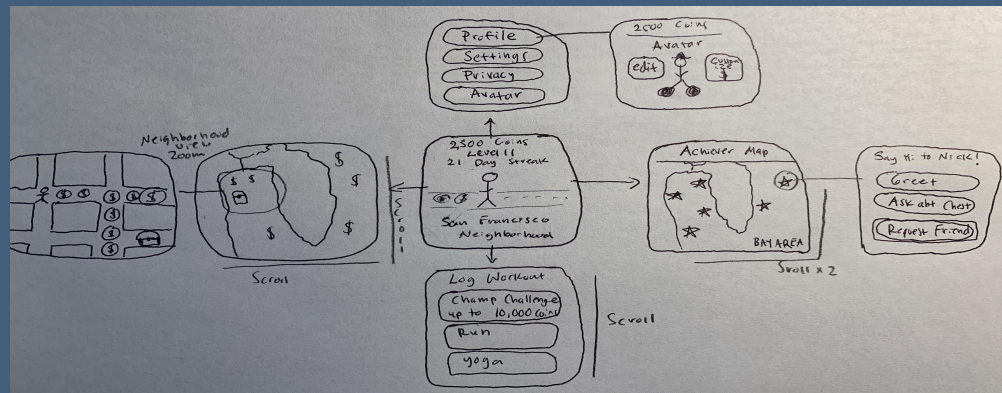 Profile
Settings
Privacy
Avatar
2500 Coins
Avatar
edit
$
Neighborhood
view
Zoom
$ $
$
$
$
$
$
$ $ $ $ $
$
$
$
Scroll
Scroll
2,500 Coins
Level 11
21 Day Streak
San Francisco
Neighborhood
Achiever Map
BAY AREA
Scroll x 2
Say Hi to Nick!
Greet
Ask abt Chest
Request Friend
Log Workout
Champ Challenge
up to 10,000 Coins
Run
Yoga
Scroll